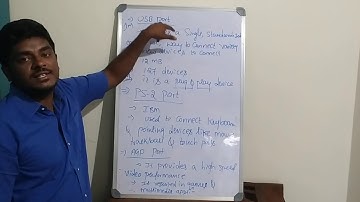 -) USB Port
a Single, Standardized
way to connect
devices to connect
12 MB
127 devices
it is a plug & play device
-) PS-2 Port
-) IBM
-) used to connect Keyboard
& pointing devices like mouse
trackball & touch pads
-) AGP Port
-) It provides a high speed
video performance
-) It required in games &
multimedia